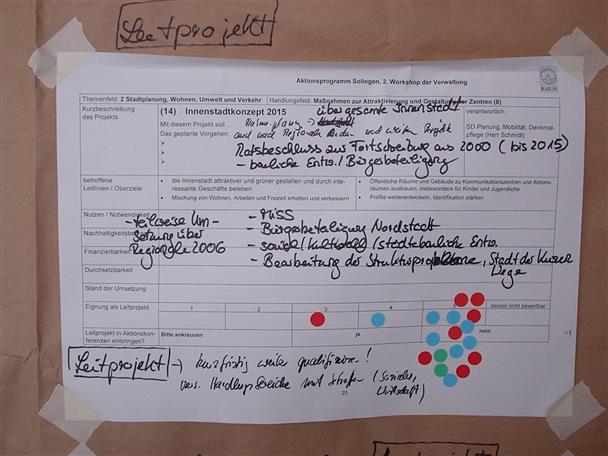 Leitprojekt
Aktionsprogramm Solingen, 2. Workshop der Verwaltung
BAUM
Themenfeld 2 Stadtplanung, Wohnen, Umwelt und Verkehr Handlungsfeld: Maßnahmen zur Attraktivierung und Gestaltung der Zentren (8)
Kurzbeschreibung des Projekts
(14) Innenstadtkonzept 2015
über gesamte Innenstadt
Mit diesem Projekt soll...
Das geplante Vorgehen:
und weitere Projekte
Ratsbeschluss zur Fortschreibung aus 2000 (bis 2015)
- bauliche Entw. / Bürgerbeteiligung
verantwortlich:
SD Planung, Mobilität, Denkmal-
pflege (Herr Schmidt)
betroffene
Leitlinien / Oberziele:
• die Innenstadt attraktiver und grüner gestalten und durch inte-
ressante Geschäfte beleben
• Mischung von Wohnen, Arbeiten und Freizeit erhalten und verbessern
• Öffentliche Räume und Gebäude zu Kommunikationszentren und Aktions-
räumen ausbauen, insbesondere für Kinder und Jugendliche
• Profile weiterentwickeln, Identifikation stärken
Nutzen / Notwendigkeit
Nachhaltigkeitsbe
Finanzierbarkeit
Durchsetzbarkeit
- teilweise Um-
setzung über
Regionale 2006
- Bürgerbeteiligung Nordstadt
- sozial / kulturell / städtebauliche Entw.
- Bearbeitung der Strukturprobleme, Stadt der kurzen
Wege
Stand der Umsetzung
Eignung als Leitprojekt 1 2 3 4 derzeit nicht bewertbar
Leitprojekt in Aktionskon-
ferenzen einbringen?
Bitte ankreuzen ja nein
Leitprojekt → kurzfristig weiter qualifizieren!
25